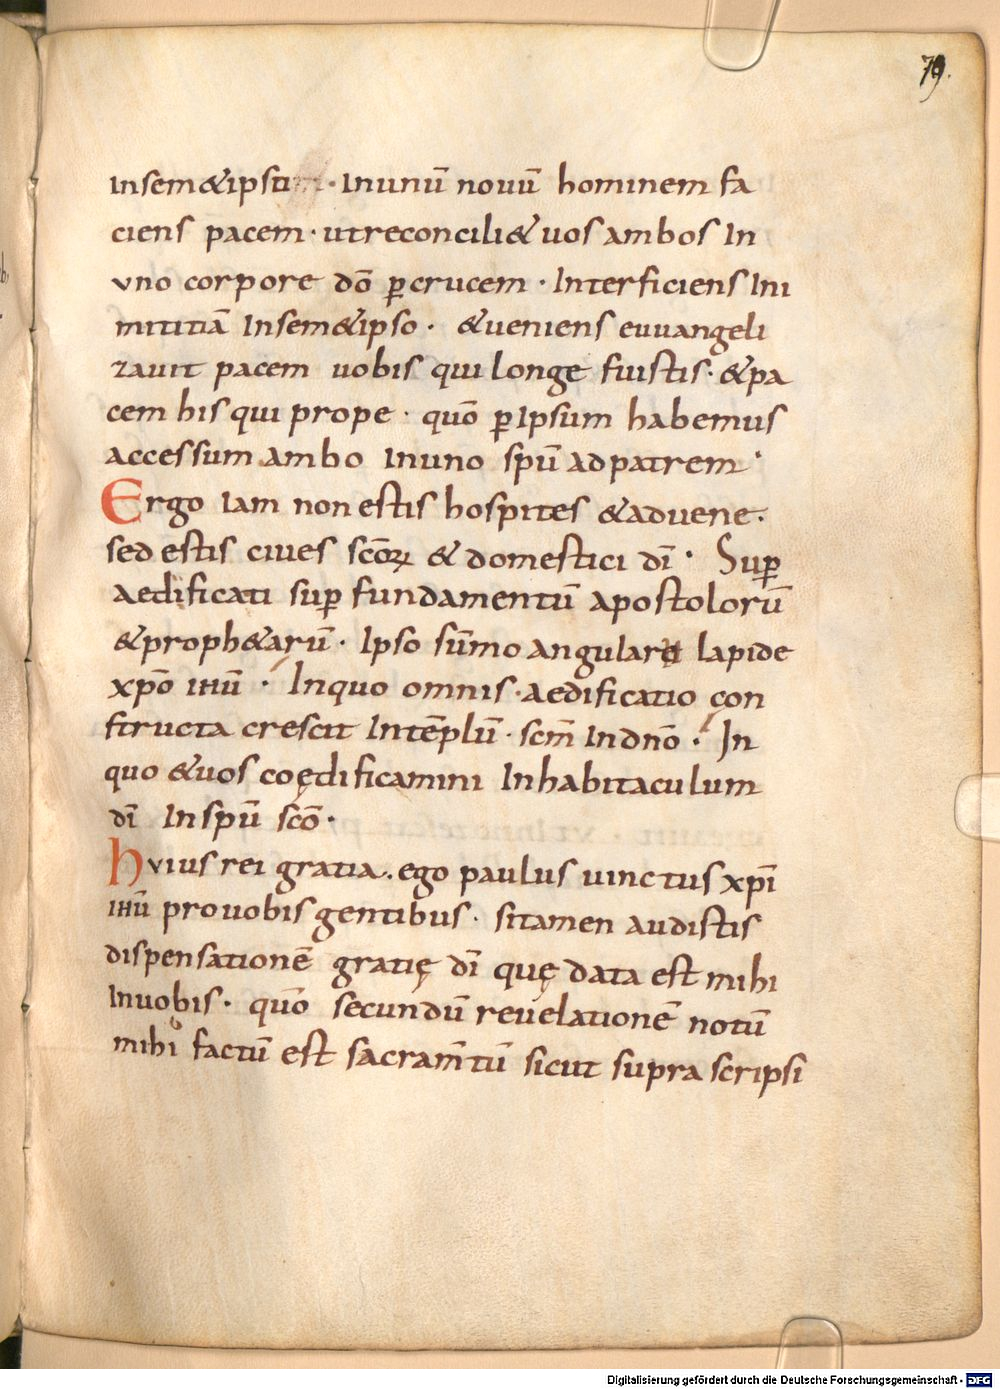 79.
Insem&ipsu · Inunū nouū hominem fa
ciens pacem · utreconcili& uos ambos In
vno corpore dō ꝑcrucem · Interficiens Ini
mititiā Insem&ipso · &ueniens euuangeli
zauit pacem uobis qui longe fuistis · &pa
cem his qui prope · quō ꝑIpsum habemus
accessum ambo Inuno spū adpatrem ·
Ergo Iam non estis hospites &aduene .
sed estis ciues scōꝝ & domestici dī · Suꝑ
aedificati suꝑ fundamentū apostolorū
&proph&arū · Ipso sūmo angulare lapide
xp̄o ihū · Inquo omnis · aedificatio con
structa crescit Intēplū · scm̄ Indnō · In
quo &uos coędificamini Inhabitaculum
dī Inspū scō ·
hvius rei gratia . ego paulus uinctus xp̄i
ihū prouobis gentibus · sitamen audistis
dispensationē gratię dī quę data est mihi
Inuobis · quō secundū reuelationē notū
mihi factū est sacram̄tū sicut supra scripsi
Digitalisierung gefördert durch die Deutsche Forschungsgemeinschaft - DFG